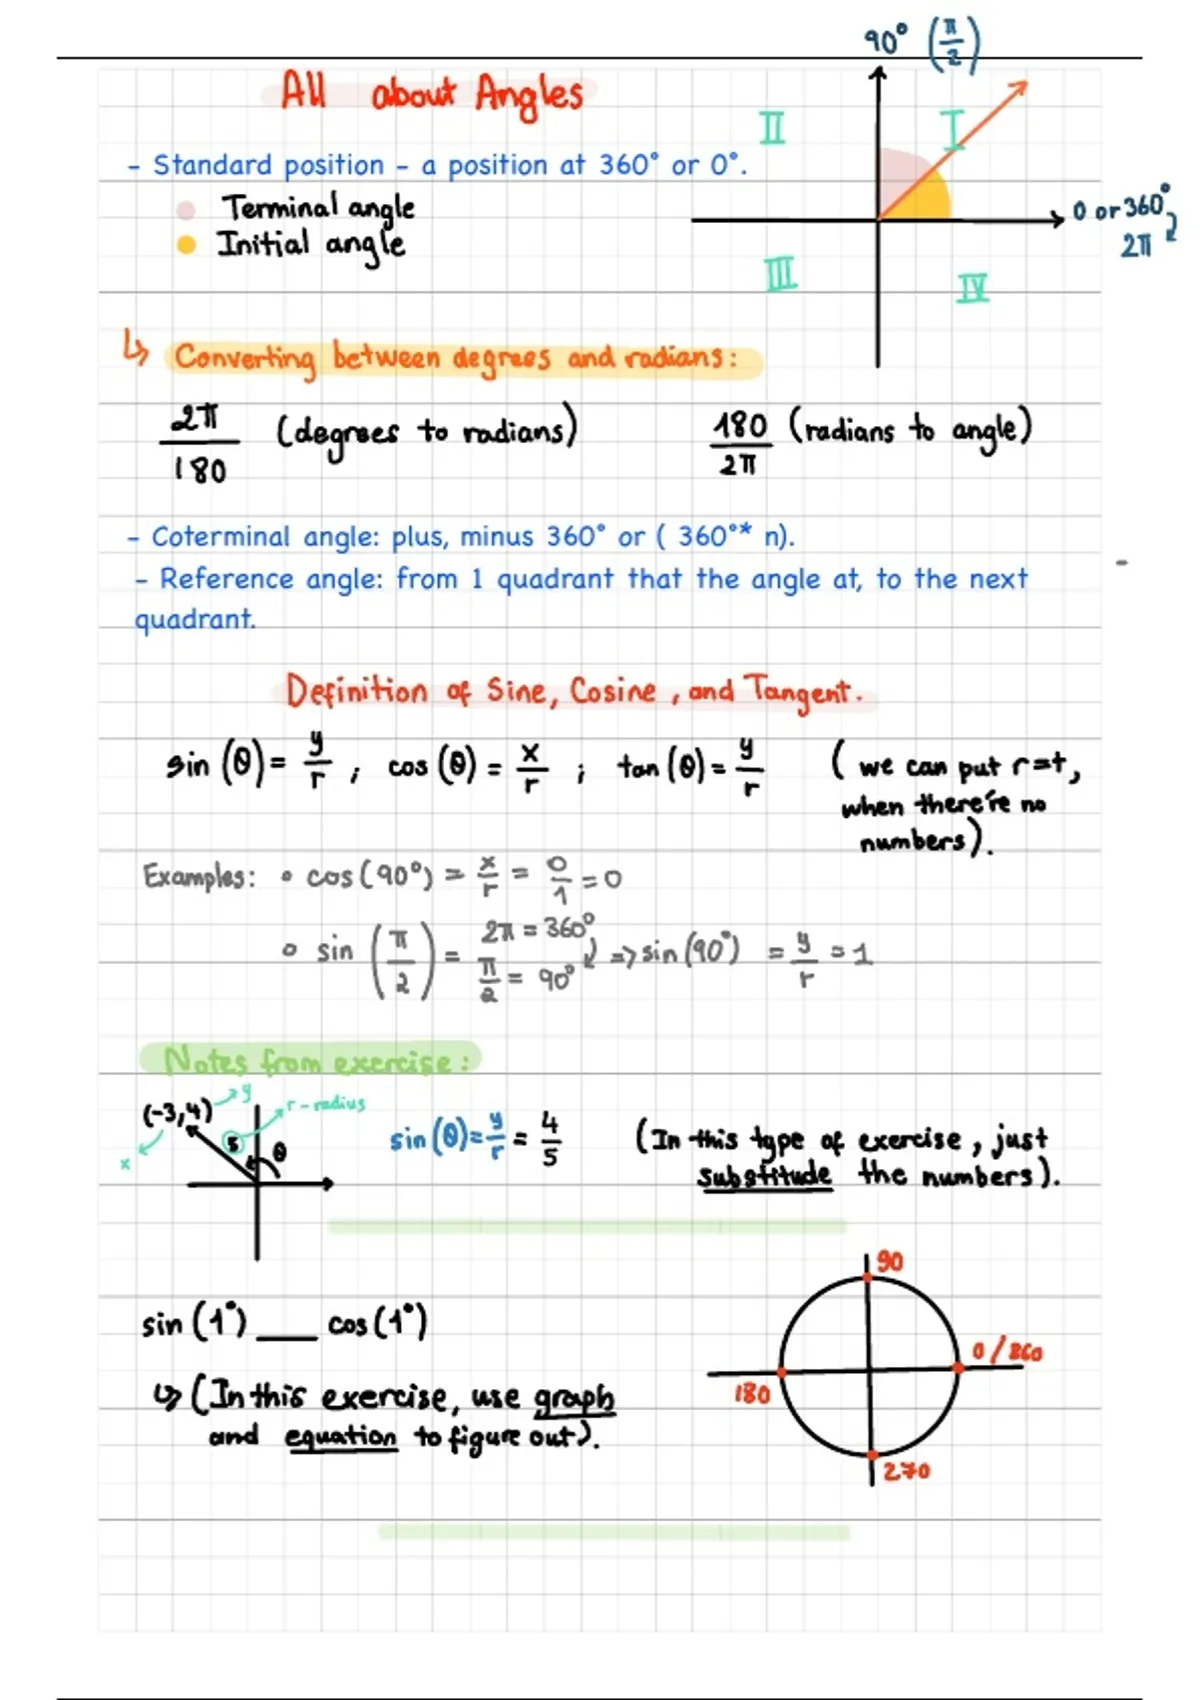 90° (π/2)
All about Angles
II
I
- Standard position - a position at 360° or 0°.
Terminal angle
0 or 360°
Initial angle
2π
III
IV
↳ Converting between degrees and radians:
2π/180 (degrees to radians)
180/2π (radians to angle)
- Coterminal angle: plus, minus 360° or ( 360°* n).
- Reference angle: from 1 quadrant that the angle at, to the next
quadrant.
Definition of Sine, Cosine, and Tangent.
sin (θ) = y/r ; cos (θ) = x/r ; tan (θ) = y/r
( we can put r=t,
when there're no
numbers).
Examples: • cos(90°) = x/r = 0/1 = 0
• sin (π/2) = 2π = 360°
π/2 = 90° => sin(90°) = y/r = 1
Notes from exercise:
(-3,4)
y
r - radius
x
5
θ
sin (θ) = y/r = 4/5
(In this type of exercise, just
substitude the numbers).
90
sin (1°) ___ cos (1°)
0/360
180
↳ (In this exercise, use graph
and equation to figure out).
270